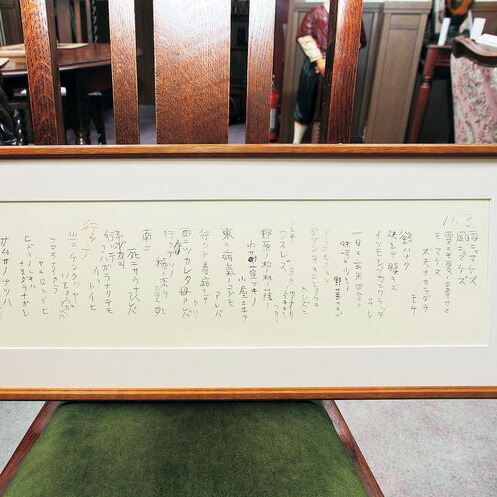 11.3
雨ニモマケズ
風ニモマケズ
雪ニモ夏ノ暑サニモ
マケヌ
丈夫ナカラダヲ
モチ
慾ハナク
決シテ瞋ラズ
イツモシヅカニワラッテ
ヰル
一日ニ玄米四合ト
味噌ト少シノ
野菜ヲタベ
アラユルコトヲ
ジブンヲカンジョウニ
入レズニ
ヨクミキキシワカリ
ソシテ
ワスレズ
野原ノ松ノ林ノ蔭ノ
小サナ萱ブキノ
小屋ニヰテ
東ニ病気ノコドモ
アレバ
行ッテ看病シテ
ヤリ
西ニツカレタ母アレバ
行ッテソノ
稲ノ束ヲ負ヒ
南ニ
死ニサウナ人アレバ
行ッテ
コハガラナクテモ
イヽトイヒ
行ッテ
北ニケンクヮヤ
ソショウガアレバ
ツマラナイカラ
ヤメロトイヒ
ヒドリノトキハ
ナミダヲナガシ
サムサノナツハ